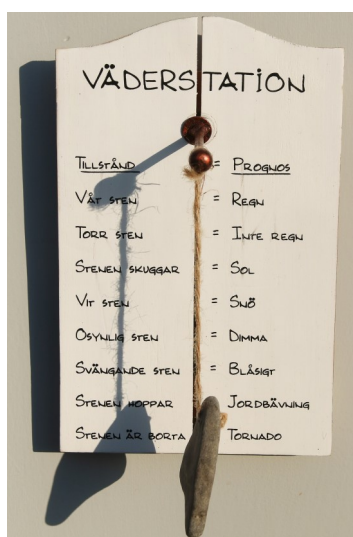 VÄDERSTATION
TILLSTÅND = PROGNOS
VÅT STEN = REGN
TORR STEN = INTE REGN
STENEN SKUGGAR = SOL
VIT STEN = SNÖ
OSYNLIG STEN = DIMMA
SVÄNGANDE STEN = BLÅSIGT
STENEN HOPPAR JORDBÄVNING
STENEN ÄR BORTA TORNADO